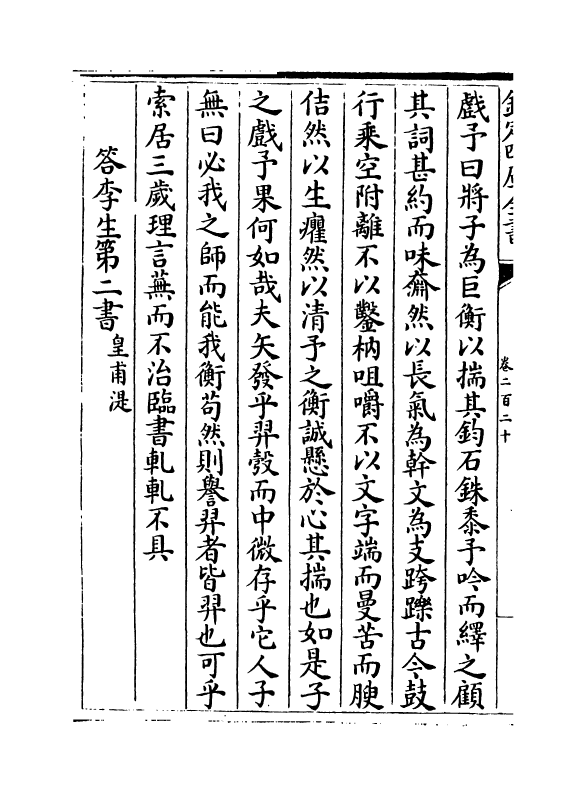 欽定四庫全書
卷二百二十
戲予曰將子為巨衡以揣其鈞石銖黍予吟而繹之顧
其詞甚約而味㴊然以長氣為幹文為支跨躒古今鼓
行乘空附離不以鑿枘咀嚼不以文字端而曼苦而腴
佶然以生癯然以清予之衡誠懸於心其揣也如是子
之戲予果何如哉夫矢發乎羿彀而中微存乎它人子
無曰必我之師而能我衡苟然則譽羿者皆羿也可乎
索居三歲理言蕪而不治臨書軋軋不具
答李生第二書皇甫湜